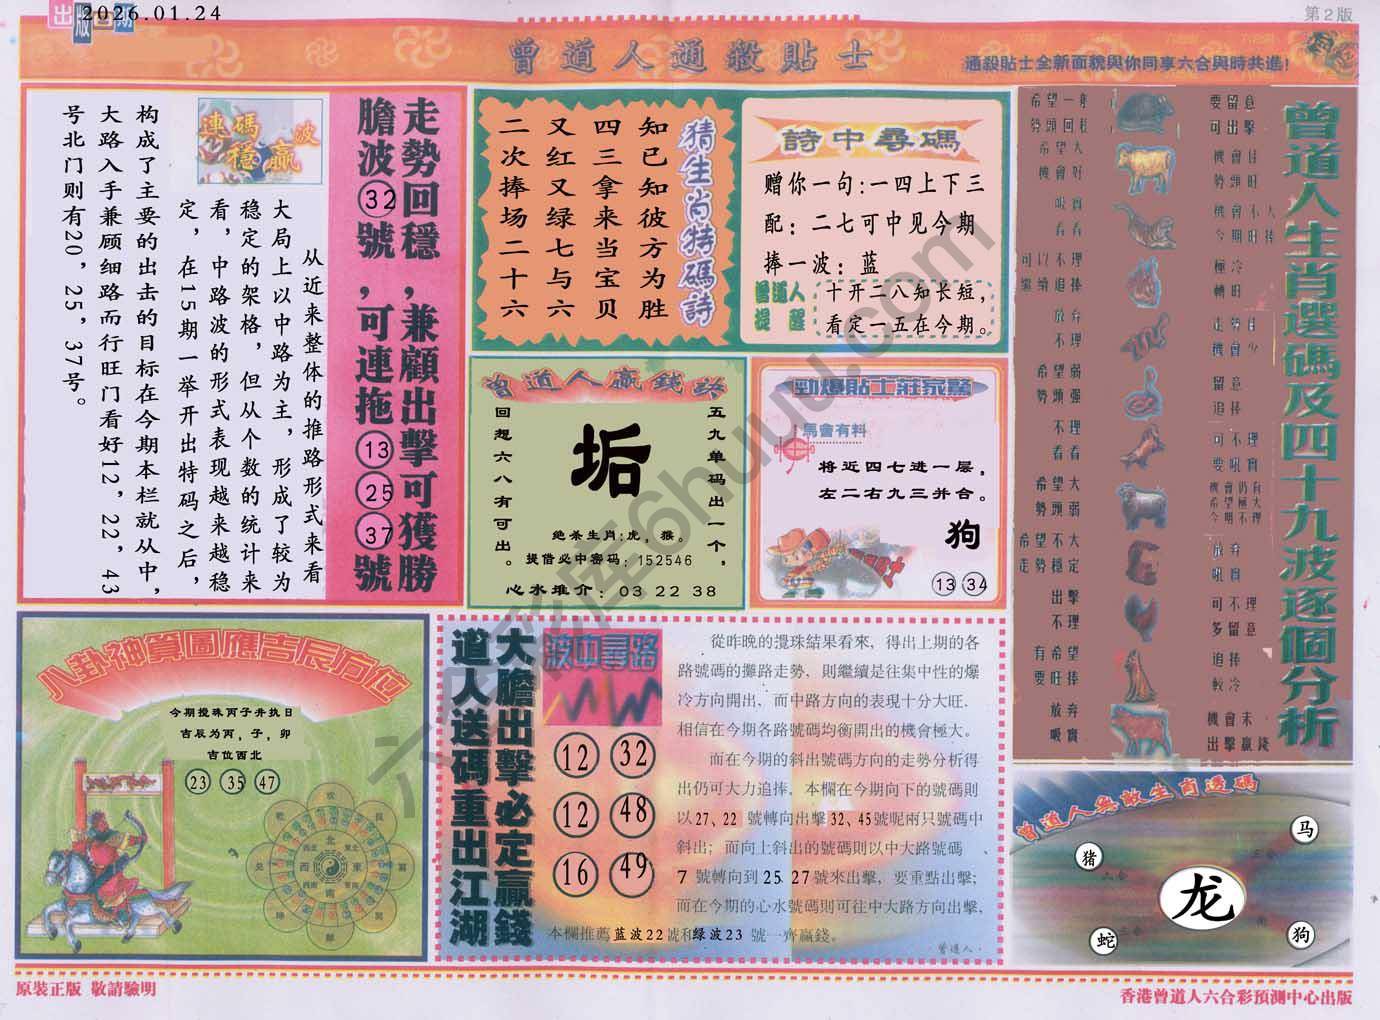 出版日期
2026.01.24
第2版
曾道人通殺貼士
通殺貼士全新面貌與你同享六合與時共進!
走勢回穩,兼顧出擊可獲勝
膽波32號,可連拖13 25 37號
連碼穩贏波
从近来整体的推路形式来看
大局上以中路为主，形成了较为
稳定的架格，但从个数的统计来
看，中路波的形式表现越来越稳
定，在15期一举开出特码之后，
构成了主要的出击的目标在今期本栏就从中，
大路入手兼顾细路而行旺门看好12，22，43
号北门则有20，25，37号。
猜生肖特碼詩
知已知彼方为胜
四三拿来当宝贝
又红又绿七与六
二次捧场二十六
詩中尋碼
赠你一句:一四上下三
配：二七可中见今期
捧一波：蓝
曾道人
提醒
十开二八知长短，
看定一五在今期。
曾道人贏錢詩
五九单码出一个，
回想六八有可出。
垢
绝杀生肖:虎，猴。
提借必中密码：152546
心水推介：03 22 38
勁爆貼士莊家驚
馬會有料
将近四七进一层，
左二右九三并合。
狗
13 34
曾道人生肖選碼及四十九波逐個分析
希望一般
勢頭回穩
要留意
可出擊
希望大
機會好
機會佳
勢頭旺
吸實
看看
機會不大
今期旺捧
可以不理
繼續追捧
極冷
轉旺
放弃
不理
走勢旺
機會少
希望弱
勢頭强
留意
追捧
不理
看看
可不理
要吼實
希望大
勢頭弱
希望不大
走勢穩定
放弃
吼實
出擊
不理
可不理
多留意
有希望
要旺捧
追捧
較冷
放弃
吸實
機會未
出擊贏錢
八卦神算圖應吉辰方位
今期搅珠丙子井执日
吉辰为丙，子，卯
吉位西北
23 35 47
北
東
南
西
大膽出擊必定贏錢
道人送碼重出江湖
波中尋路
12 32
12 48
16 49
從昨晚的攪珠結果看來，得出上期的各
路號碼的攤路走勢，則繼續是往集中性的爆
冷方向開出，而中路方向的表現十分大旺．
相信在今期各路號碼均衡開出的機會極大。
而在今期的斜出號碼方向的走勢分析得
出仍可大力追捧，本欄在今期向下的號碼則
以27、22 號轉向出擊32、45號呢兩只號碼中
斜出；而向上斜出的號碼則以中大路號碼、
7 號轉向到25、27號來出擊，要重點出擊；
而在今期的心水號碼則可往中大路方向出擊，
本欄推薦蓝波22號和绿波23 號一齊贏錢。
曾道人．
曾道人無敵生肖透碼
马
猪
龙
蛇
狗
原裝正版 敬請驗明
香港曾道人六合彩預測中心出版
六合彩库6huuu.com